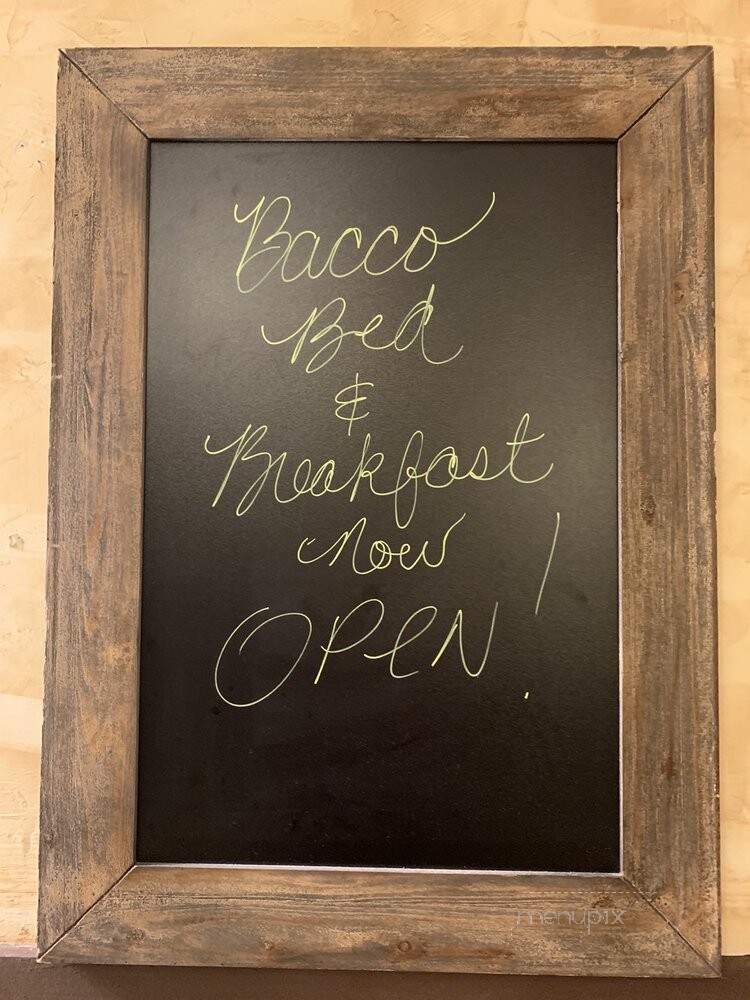 Bacco
Bed
&
Breakfast
Now
OPEN!
menupix